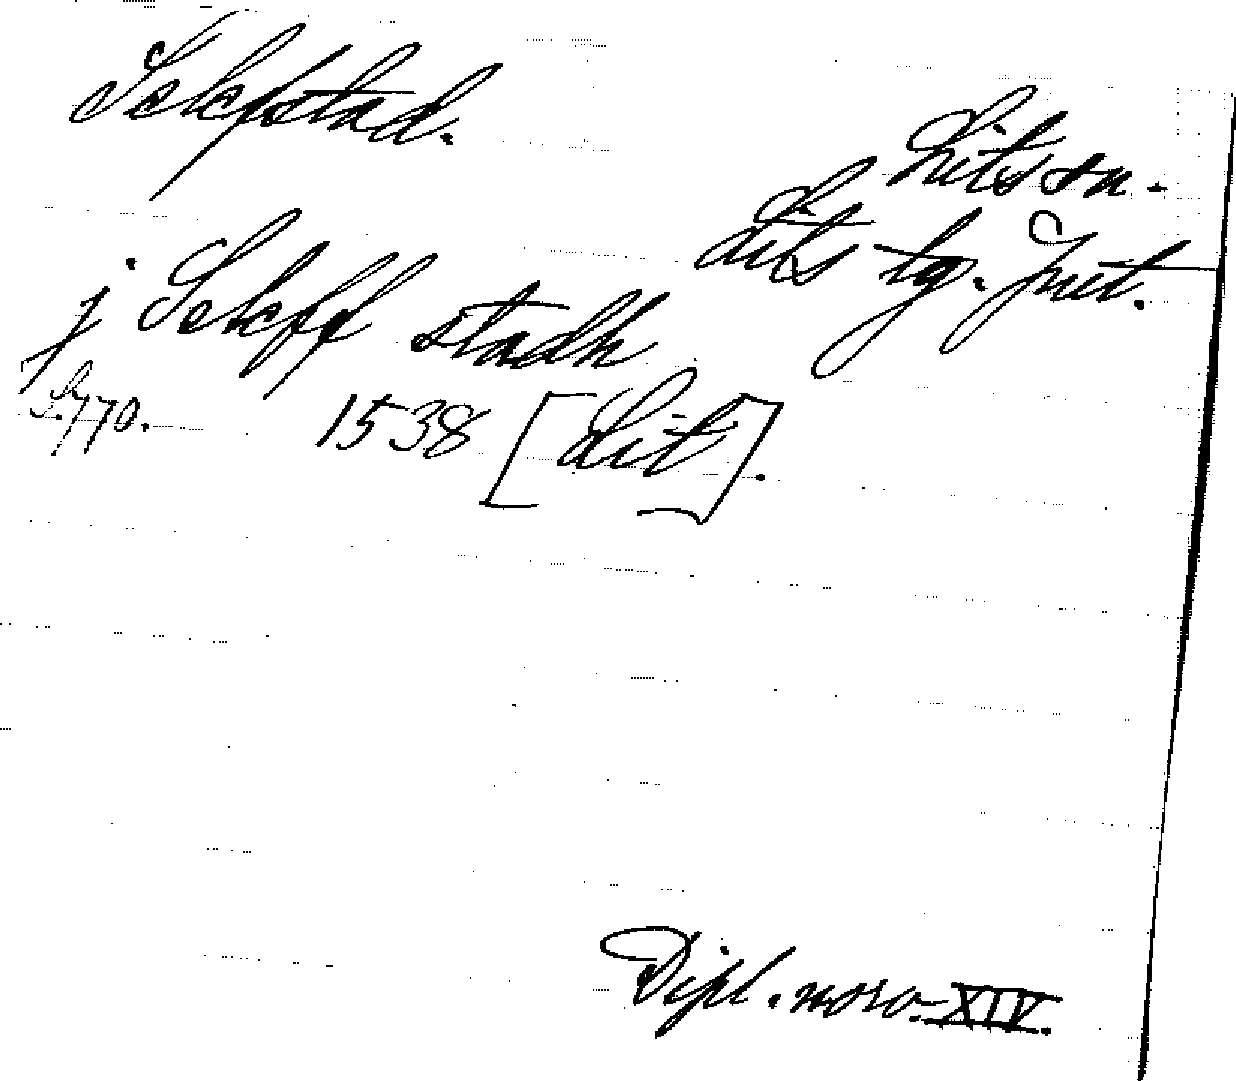 Selefstad.
Lits sn.
Lits tg. Jmt.
j Seleff stadh
S. 770. 1538 [Lit].
Dipl. norv. XIV.